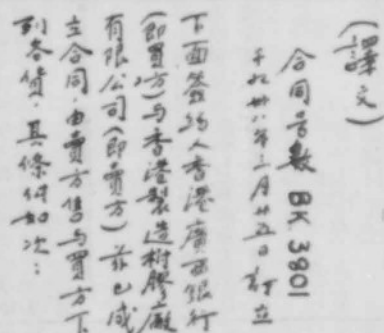 (譯文)
合同号數 BK 3801
于 卅八年三月廿五日訂立
下面簽約人香港廣西銀行
(即買方)与香港製造樹膠廠
有限公司(即賣方)茲已成
立合同,由賣方售与買方下
列各貨,其條件如次: